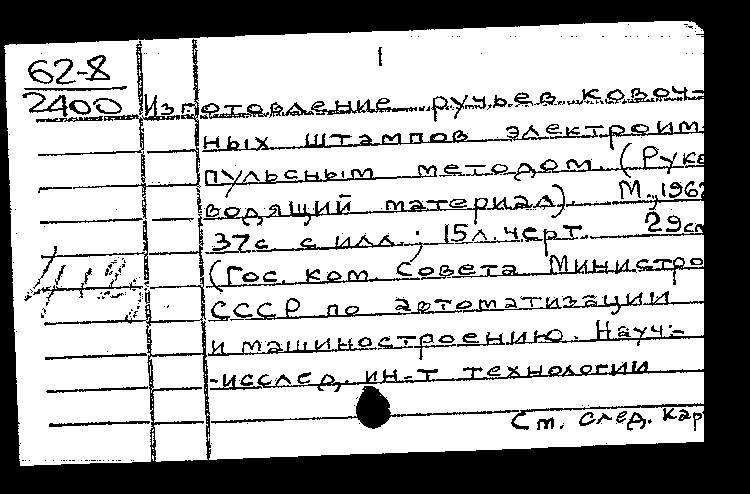 1
62-8
2400
Изготовление ручьев ковоч-
ных штампов электроим-
пульсным методом. (Руко
водящий материал). М., 1962
37с с илл.; 15л. черт. 29см
(Гос. ком. Совета Министро
СССР по автоматизации
и машиностроению. Науч.-
-исслед. ин-т технологии
См. след. кар